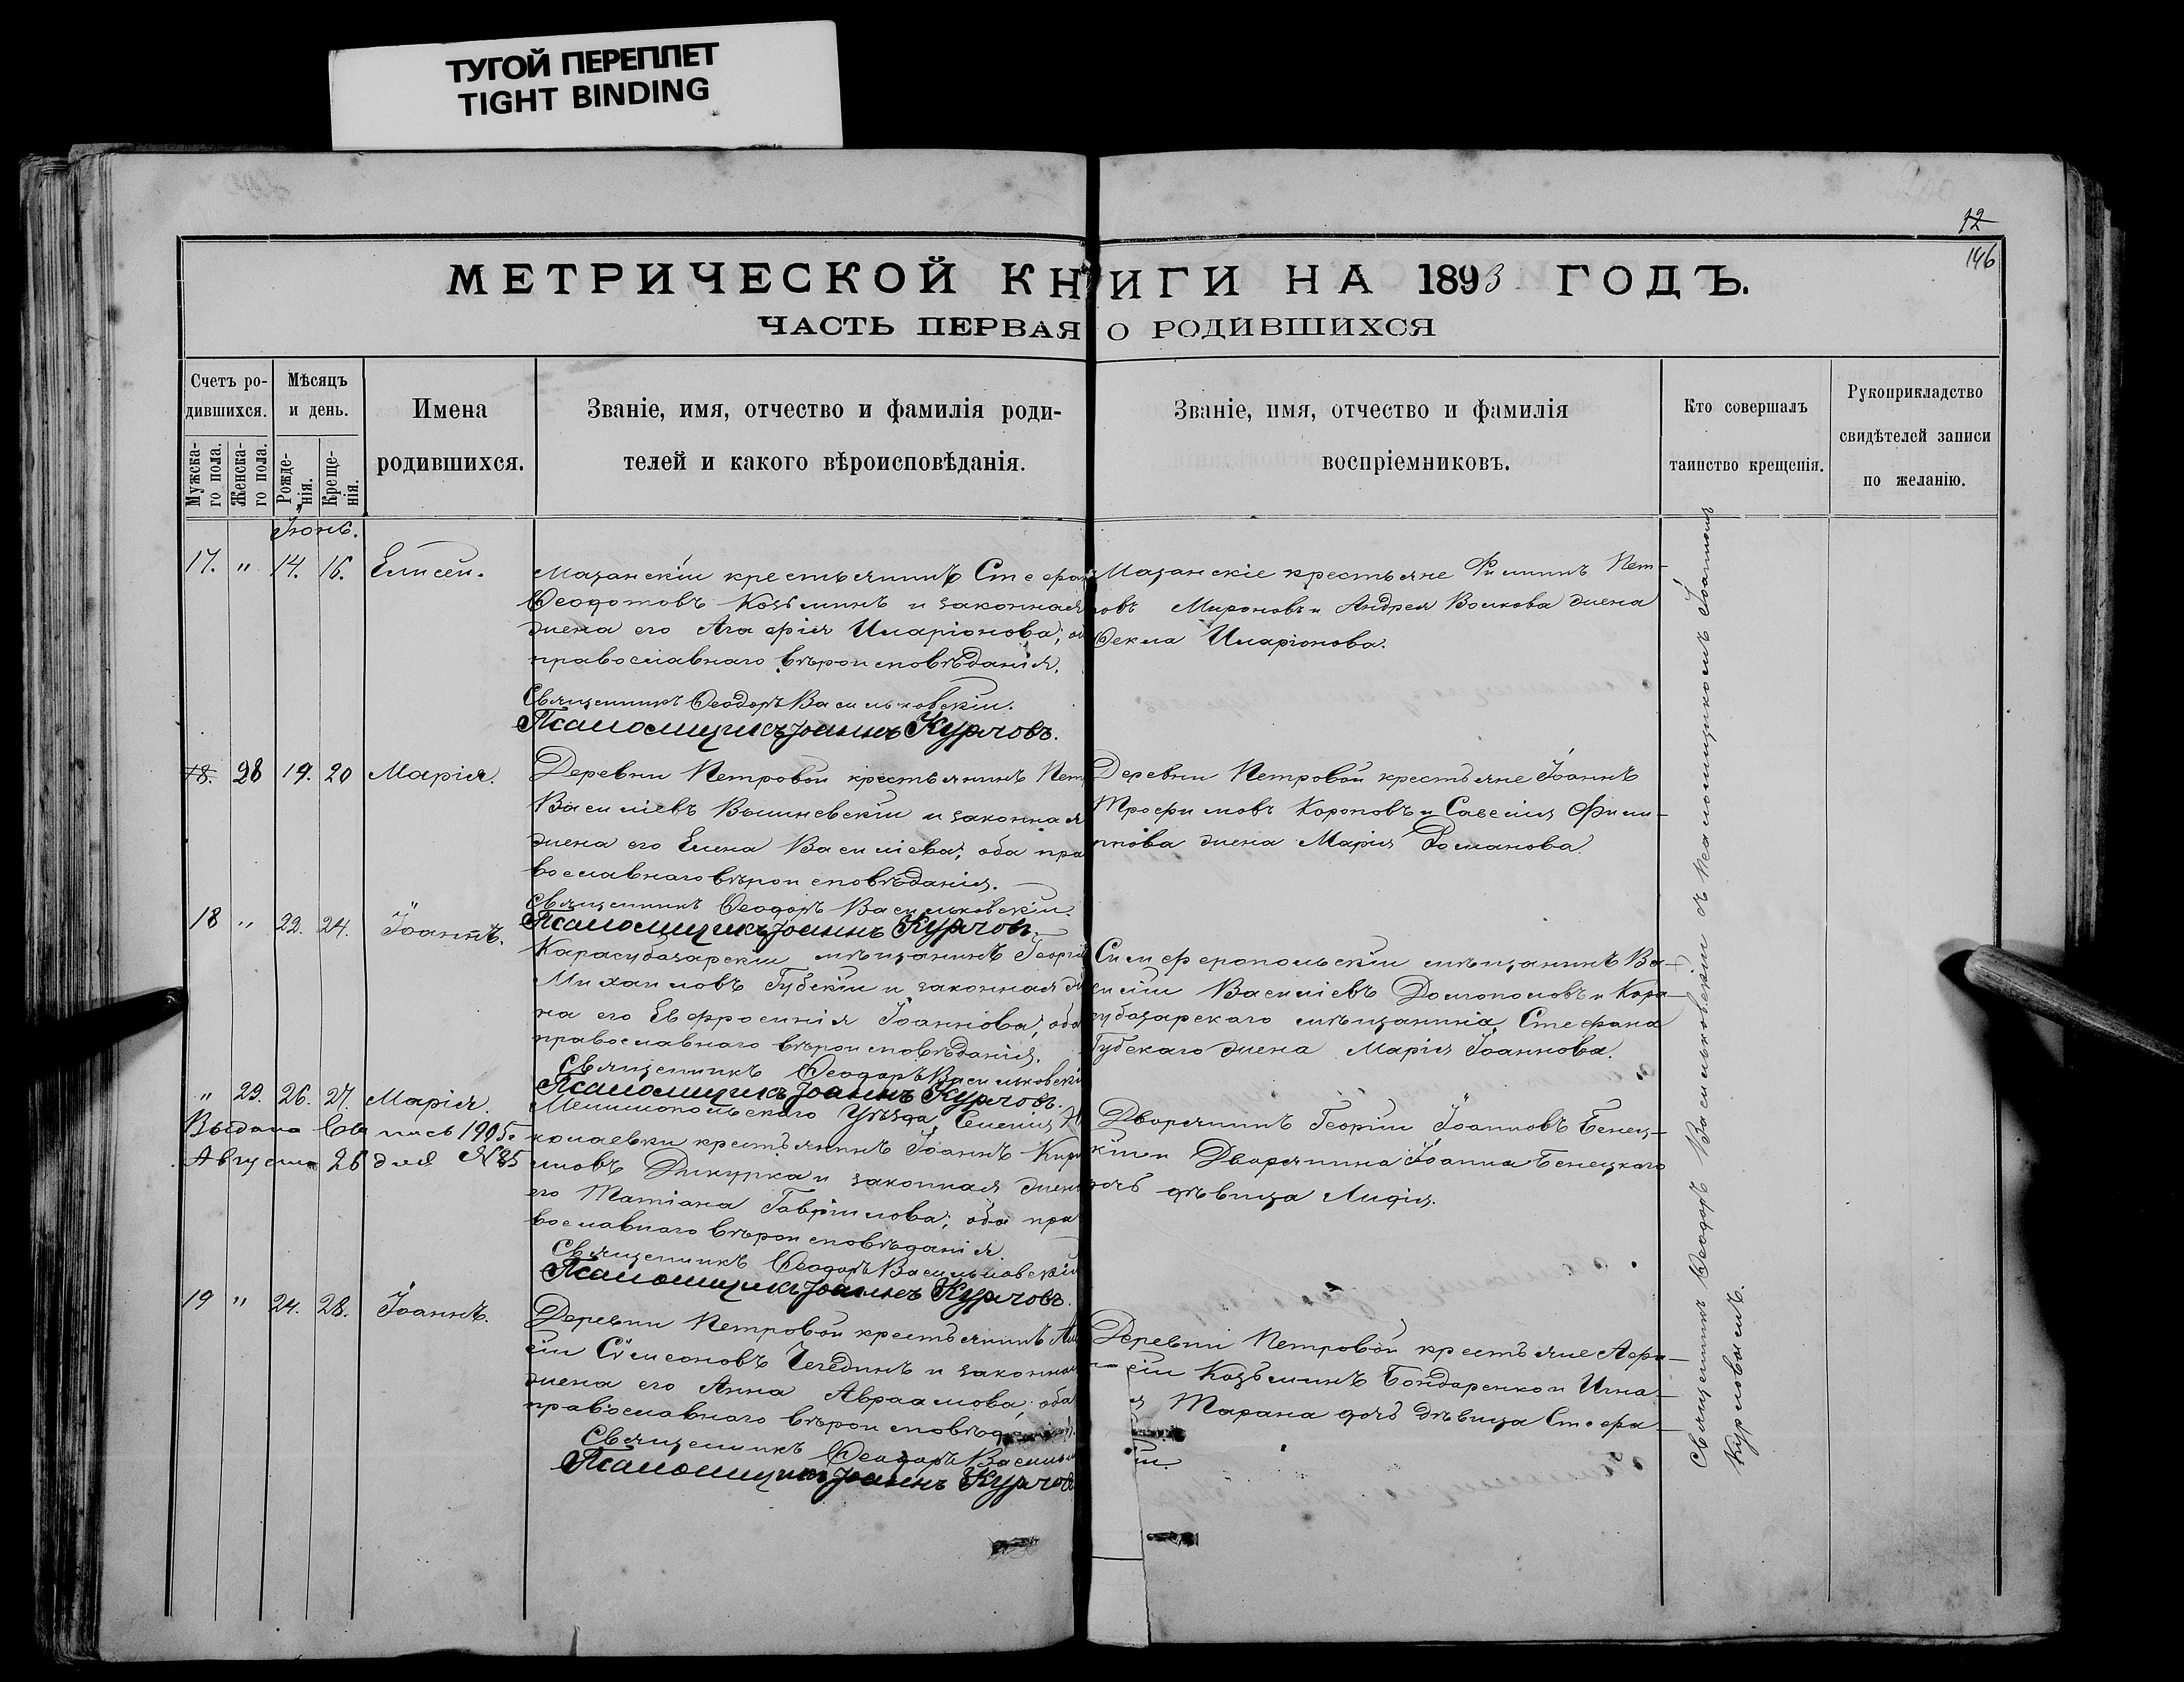 ТУГОЙ ПЕРЕПЛЕТ
TIGHT BINDING
12
146
МЕТРИЧЕСКОЙ КНИГИ НА 1893 ГОДЪ.
ЧАСТЬ ПЕРВАЯ О РОДИВШИХСЯ
Счетъ ро-
дившихся.
Мужска-
го пола.
Женска-
го пола.
Мѣсяцъ
и день.
Рожде-
нія.
Креще-
нія.
Имена
родившихся.
Званіе, имя, отчество и фамилія роди-
телей и какого вѣроисповѣданія.
Званіе, имя, отчество и фамилія
воспріемниковъ.
Кто совершалъ
таинство крещенія.
Рукоприкладство
свидѣтелей записи
по желанію.
Іюнь.
17. " 14. 16. Елисей.
Мазанскій крестьянинъ Стефан
Ѳеодотовъ Козьминъ и законная
жена его Агафія Иларіонова; о
православнаго вѣроисповѣданія.
Священникъ Ѳеодоръ Васильковскій.
Псаломщикъ Іоаннъ Курловъ.
Мазанскіе крестьяне Филиппъ Пет-
овъ Мироновъ и Андрея Волкова жена
Ѳекла Иларіонова.
18. 28 19. 20 Марія.
Деревни Петровой крестьянинъ Пет
Василіевъ Вышневскій и законная
жена его Елена Василіева; оба пра
вославнаго вѣроисповѣданія.
Священникъ Ѳеодоръ Васильковскій.
Псаломщикъ Іоаннъ Курловъ.
Деревни Петровой крестьяне Іоаннъ
Трофимовъ Короповъ и Савелія Фили-
ппова жена Марія Романова.
18 " 22. 24. Іоаннъ.
Карасубазарскій мѣщанинъ Георгій
Михаиловъ Губскій и законная же
на его Евфросинія Іоаннова; оба
православнаго вѣроисповѣданія.
Священникъ Ѳеодоръ Васильковскі
Псаломщикъ Іоаннъ Курловъ.
Симферопольскій мѣщанинъ Ва-
силій Василіевъ Долгополовъ и Кара-
субазарскаго мѣщанина Стефана
Губскаго жена Марія Іоаннова.
" 29. 26. 27. Марія.
Выдана 1905 г
Августа 26 дня № 85
Мелитопольскаго Уѣзда, Селенія Н
колаевки крестьянинъ Іоаннъ Кири
ловъ Дикурка и законная жена
его Татіана Гавріилова; оба пра
вославнаго вѣроисповѣданія.
Священникъ Ѳеодоръ Васильковскій
Псаломщикъ Іоаннъ Курловъ.
Дворянинъ Георгій Іоанновъ Бенец-
кій и Дворянина Іоанна Бенецкаго
дочь дѣвица Лидія.
19 " 24. 28. Іоаннъ.
Деревни Петровой крестьянинъ Ал
сій Симеоновъ Чегединъ и законная
жена его Анна Авраамова; оба
православнаго вѣроисповѣд
Священникъ Ѳеодоръ Василь
Псаломщикъ Іоаннъ Курлов
Деревни Петровой крестьяне Афа-
сій Козьминъ Бондаренко и Игна-
Тарана дочь дѣвица Стефа-
Священникъ Ѳеодоръ Васильковскій съ псаломщикомъ Іоанномъ
Курловымъ.